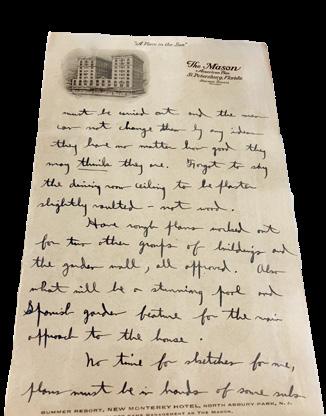 "A Place in the Sun"
The Mason
American Plan
St. Petersburg, Florida
must be carried out and the men
can not change them by any ideas
they have no matter how good they
may think they are. Forgot to say
the dining room ceiling to be plaster
slightly vaulted – not wood.
Have rough plans worked out
for two other groups of buildings and
the garden wall, all approved. Also
what will be a stunning pool and
Spanish garden feature for the main
approach to the house.
No time for sketches for me,
plans must be in hands of some subs
SUMMER RESORT, NEW MONTEREY HOTEL, NORTH ASBURY PARK, N. J.
SAME MANAGEMENT AS THE MASON